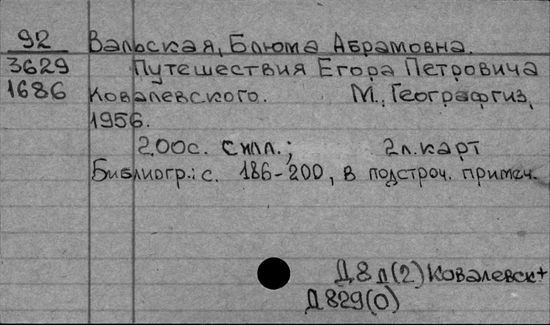 92 Вальская, Блюма Абрамовна.
3629 Путешествия Егора Петровича
1686 Ковалевского. М., Географгиз,
1956.
200с. с илл.; 2л. карт
Библиогр.: с. 186-200, в подстроч. примеч.
Д8л(2) Ковалевск+
Д829(0)